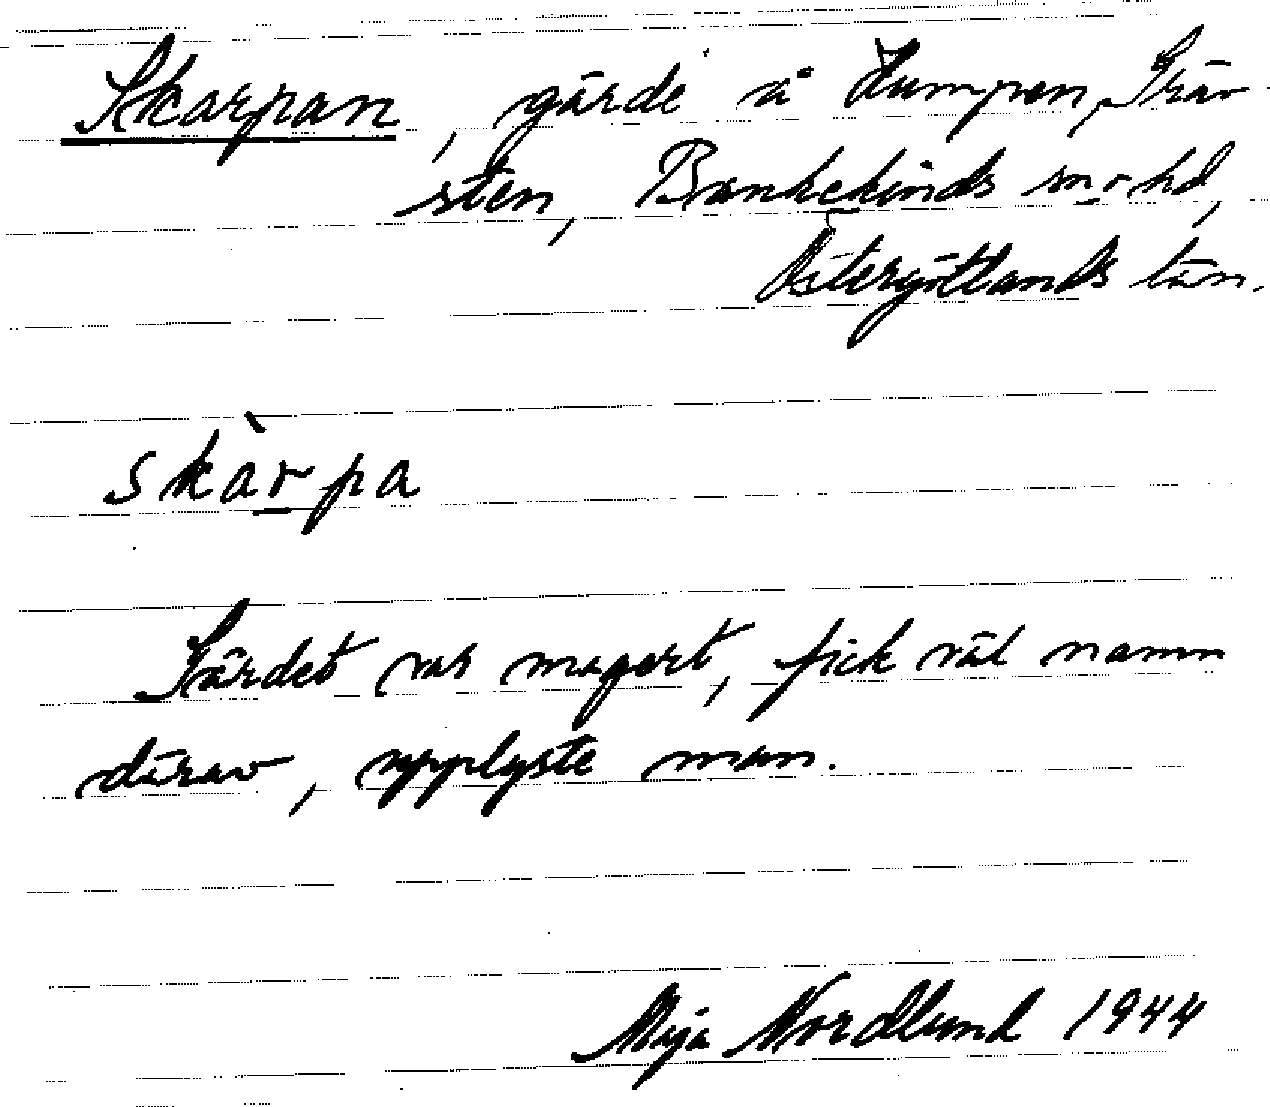 Skarpan, gärde å Humpen, Grav
sten, Bankekinds sn o hd,
Östergötlands län.
skàrpa
Gärdet var magert, fick väl namn
därav, upplyste man.
Maja Nordlund 1944